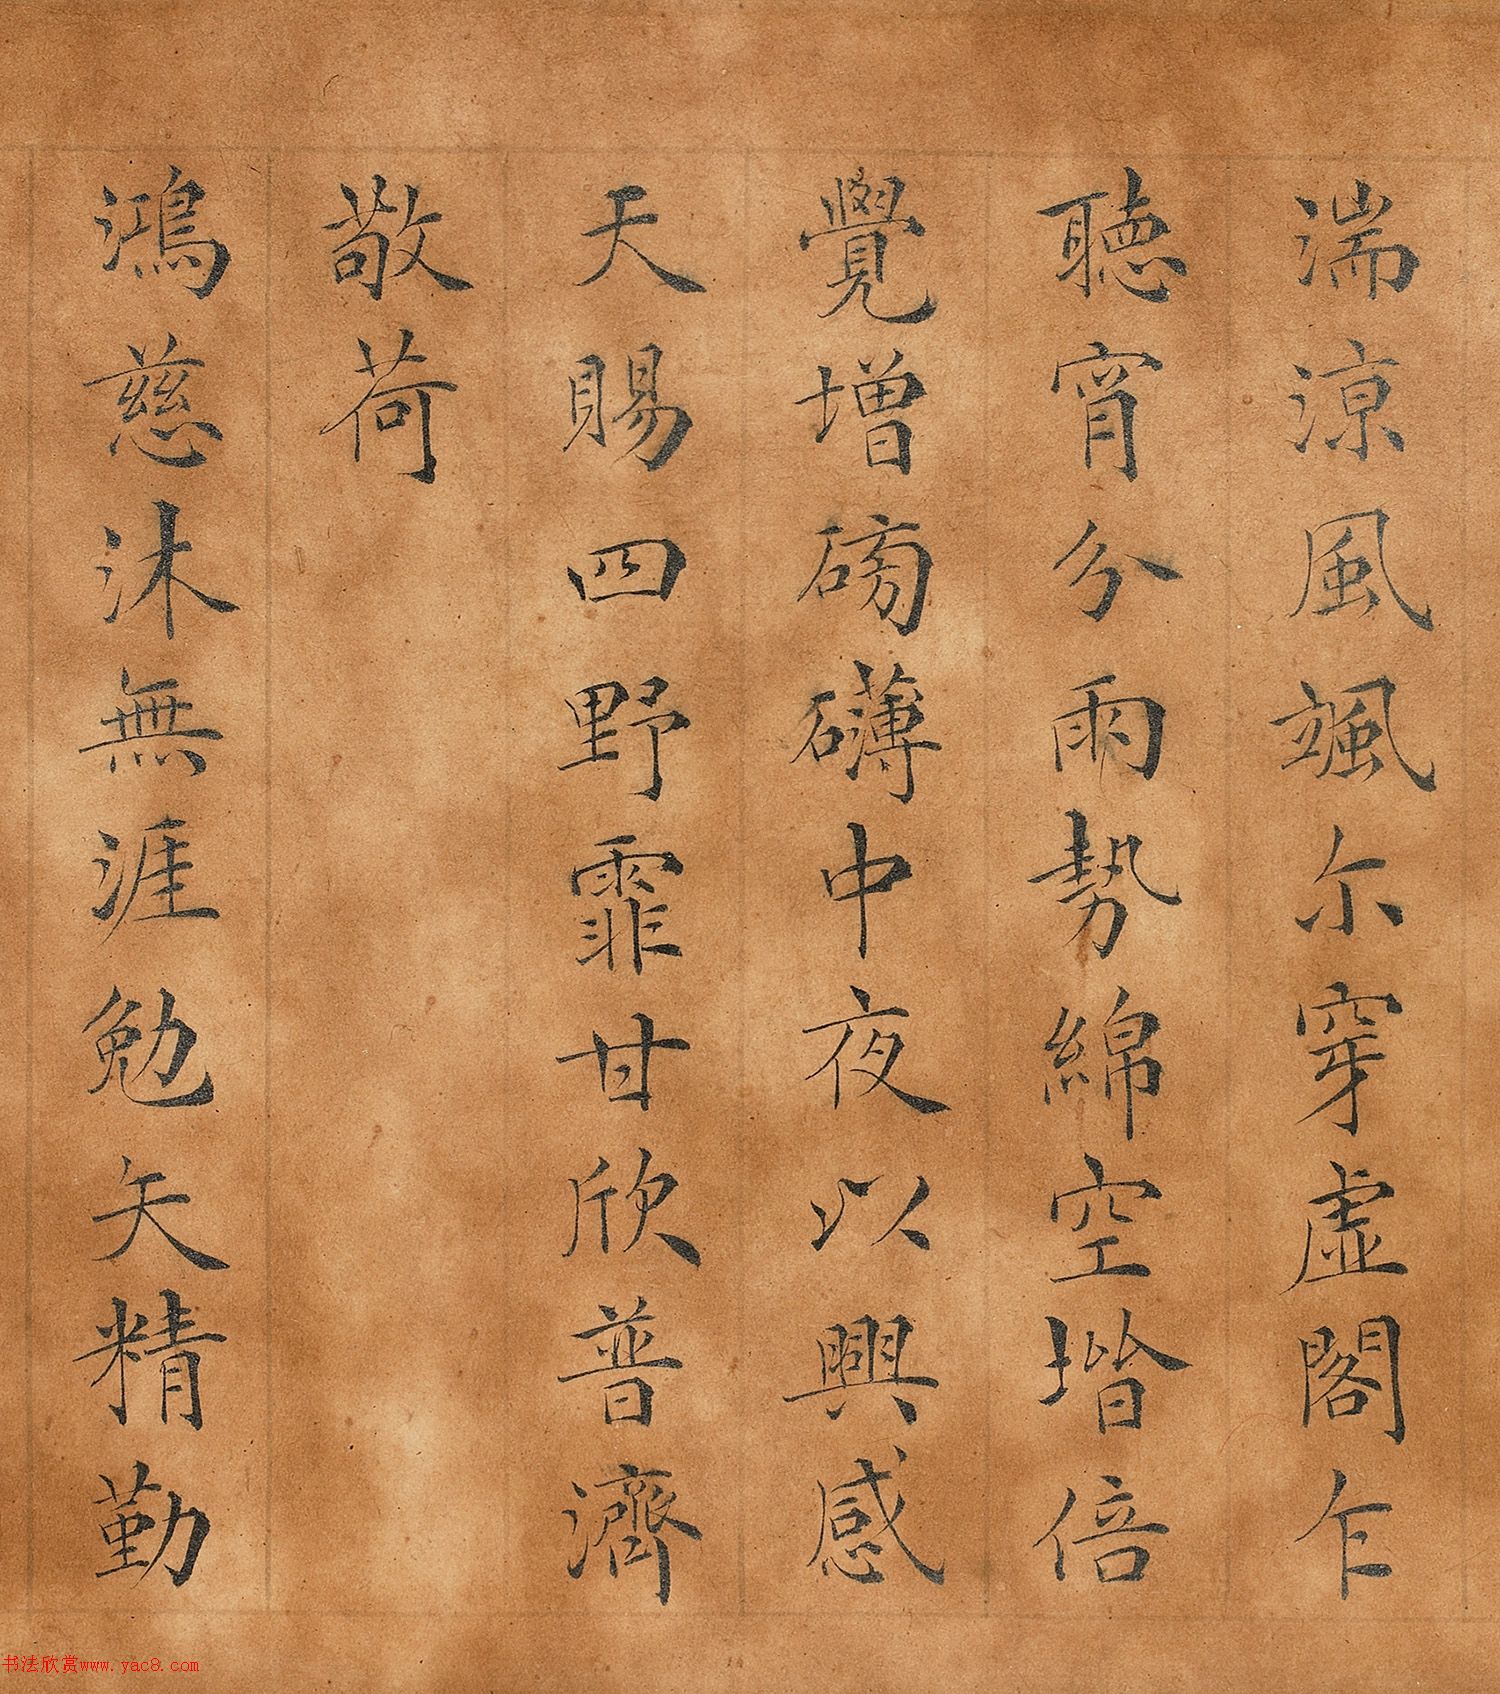 湍涼風颯尔穿虛閣乍
聽宵分雨勢綿空堦倍
覺增磅礴中夜以興感
天賜四野霏甘欣普濟
敬荷
鴻慈沐無涯勉矢精勤
书法欣赏www.yac8.com